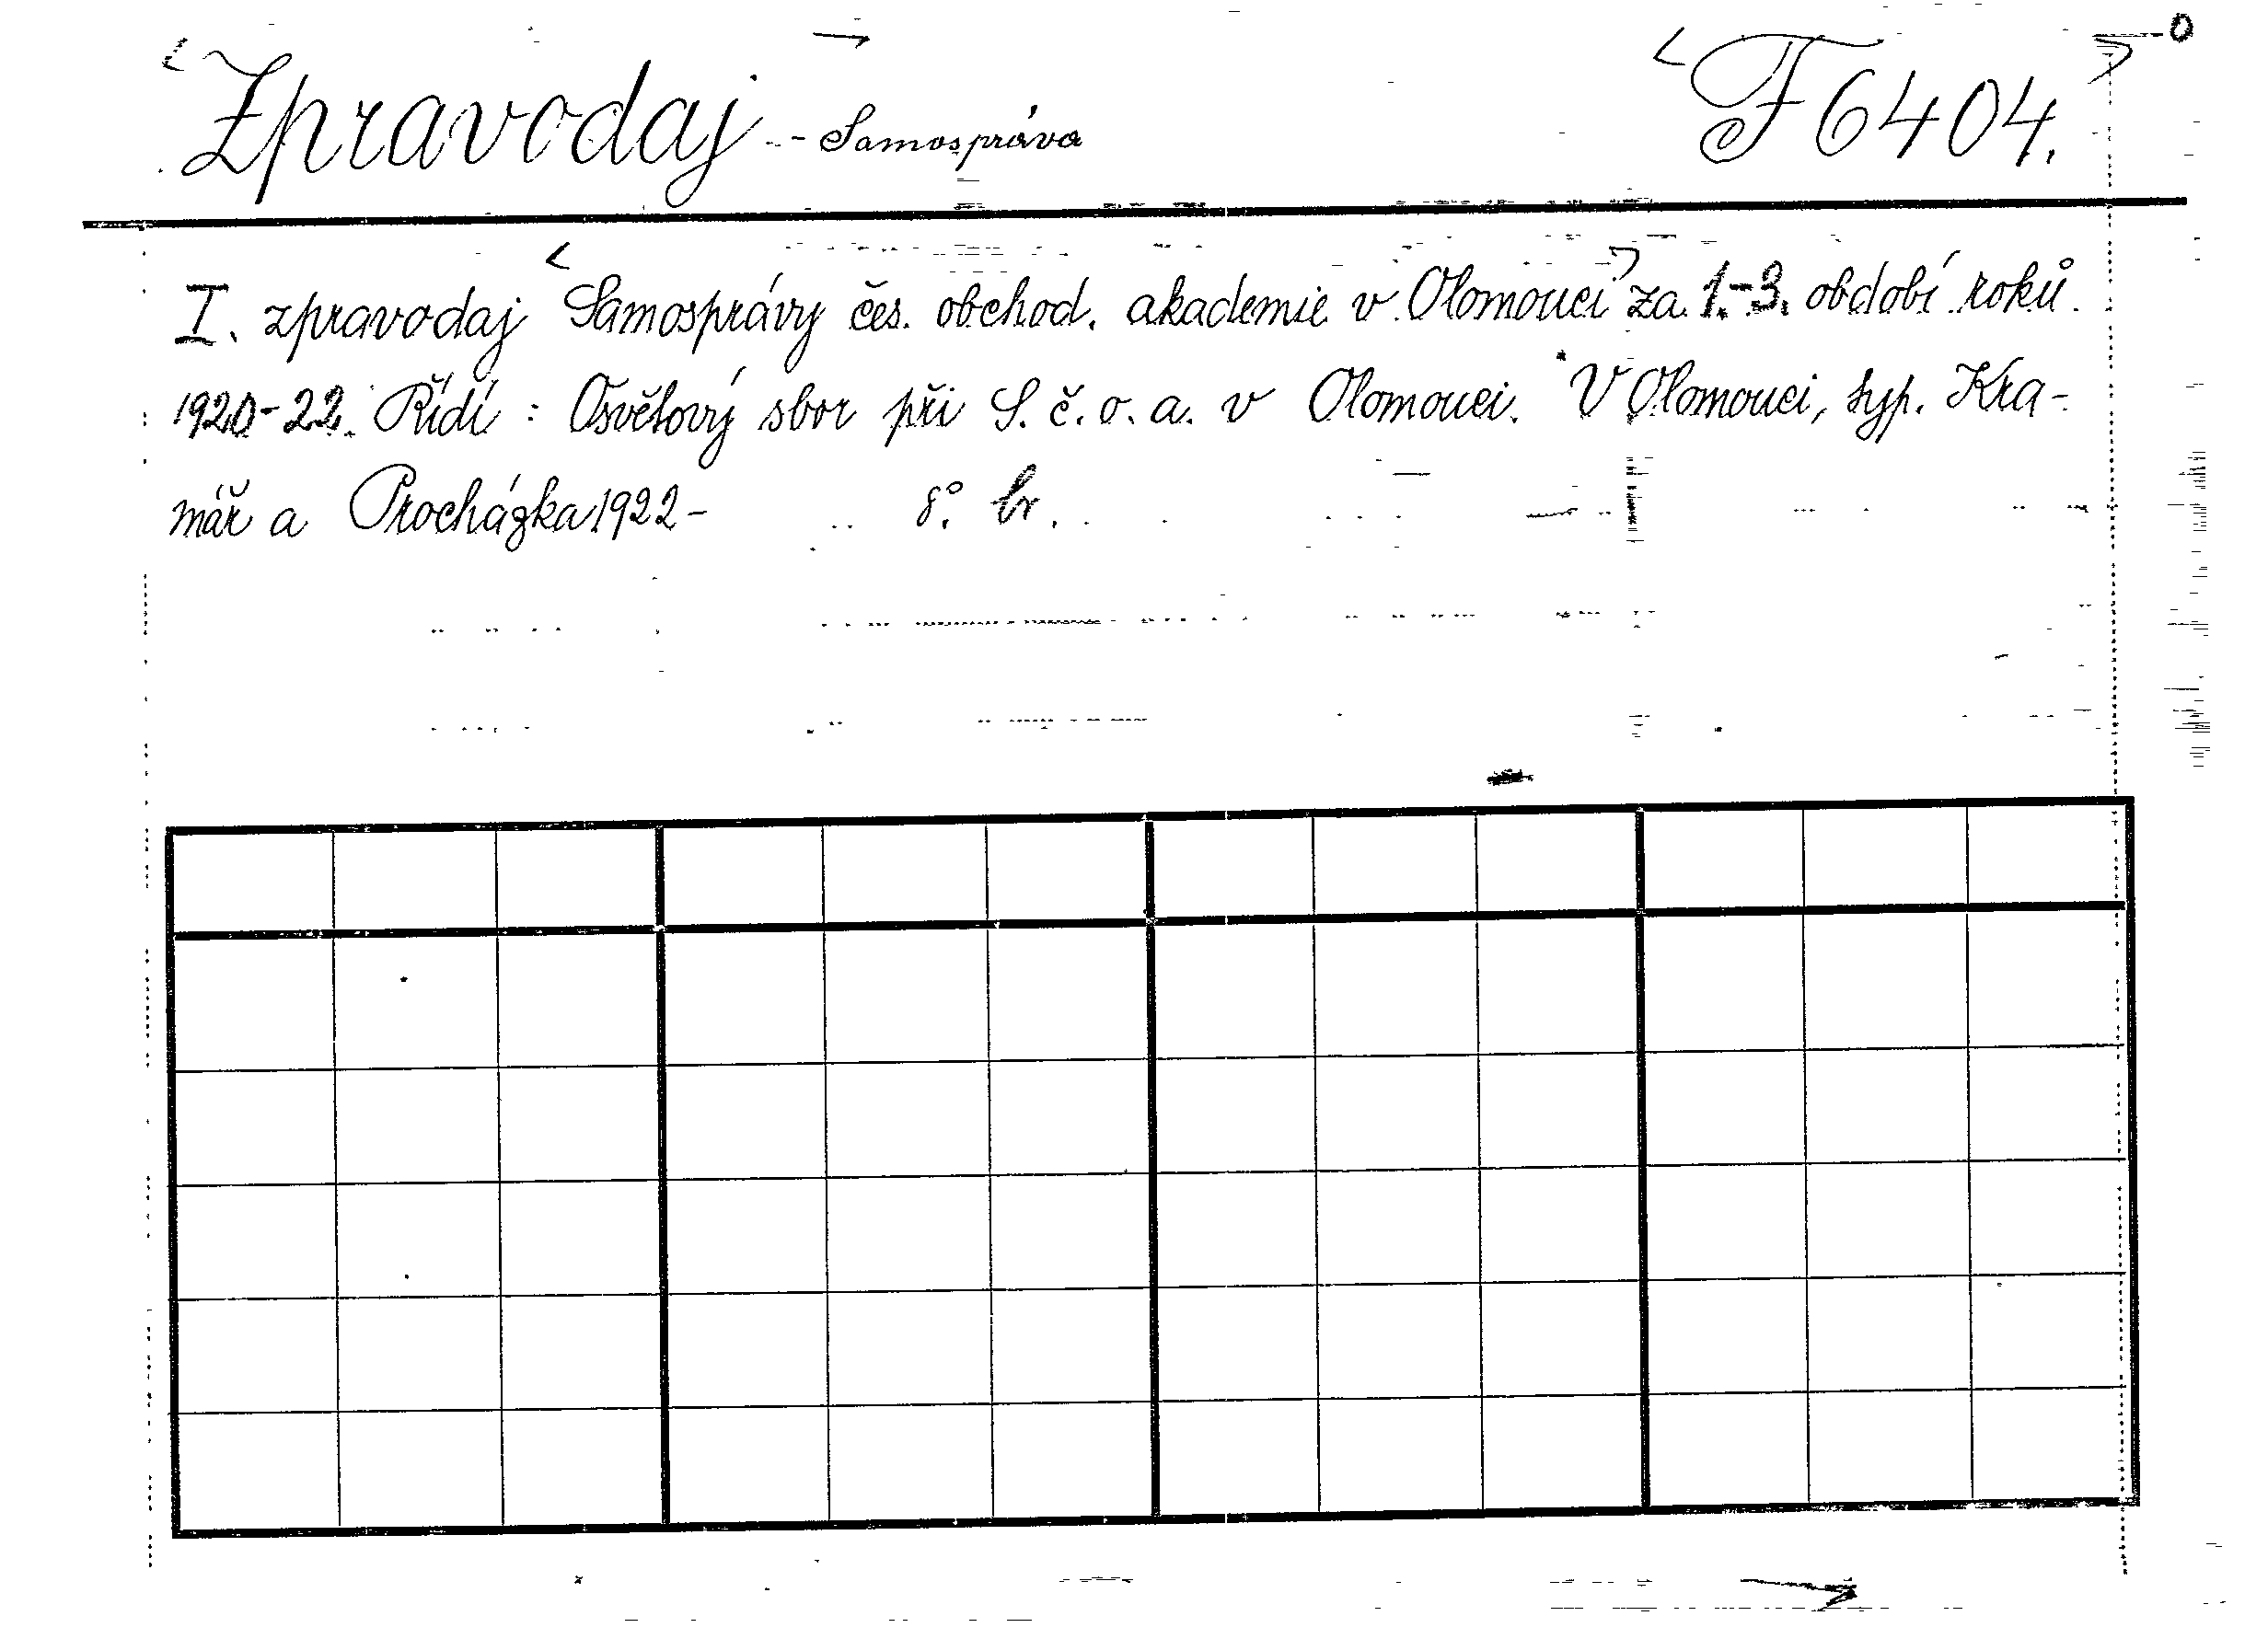 Zpravodaj - Samospráva F 6404.
I. zpravodaj Samosprávy čes. obchod. akademie v Olomouci za 1.-3. období roků
1920-22. Řídí : Osvětový sbor při S. č. o. a. v Olomouci. V Olomouci, typ. Kra-
mář a Procházka 1922- 8°. br.